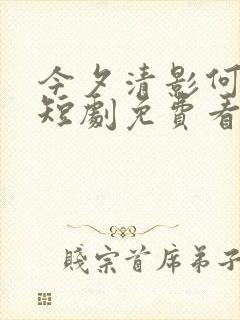 今夕清影何
短劇免費看
賤宗首席弟子